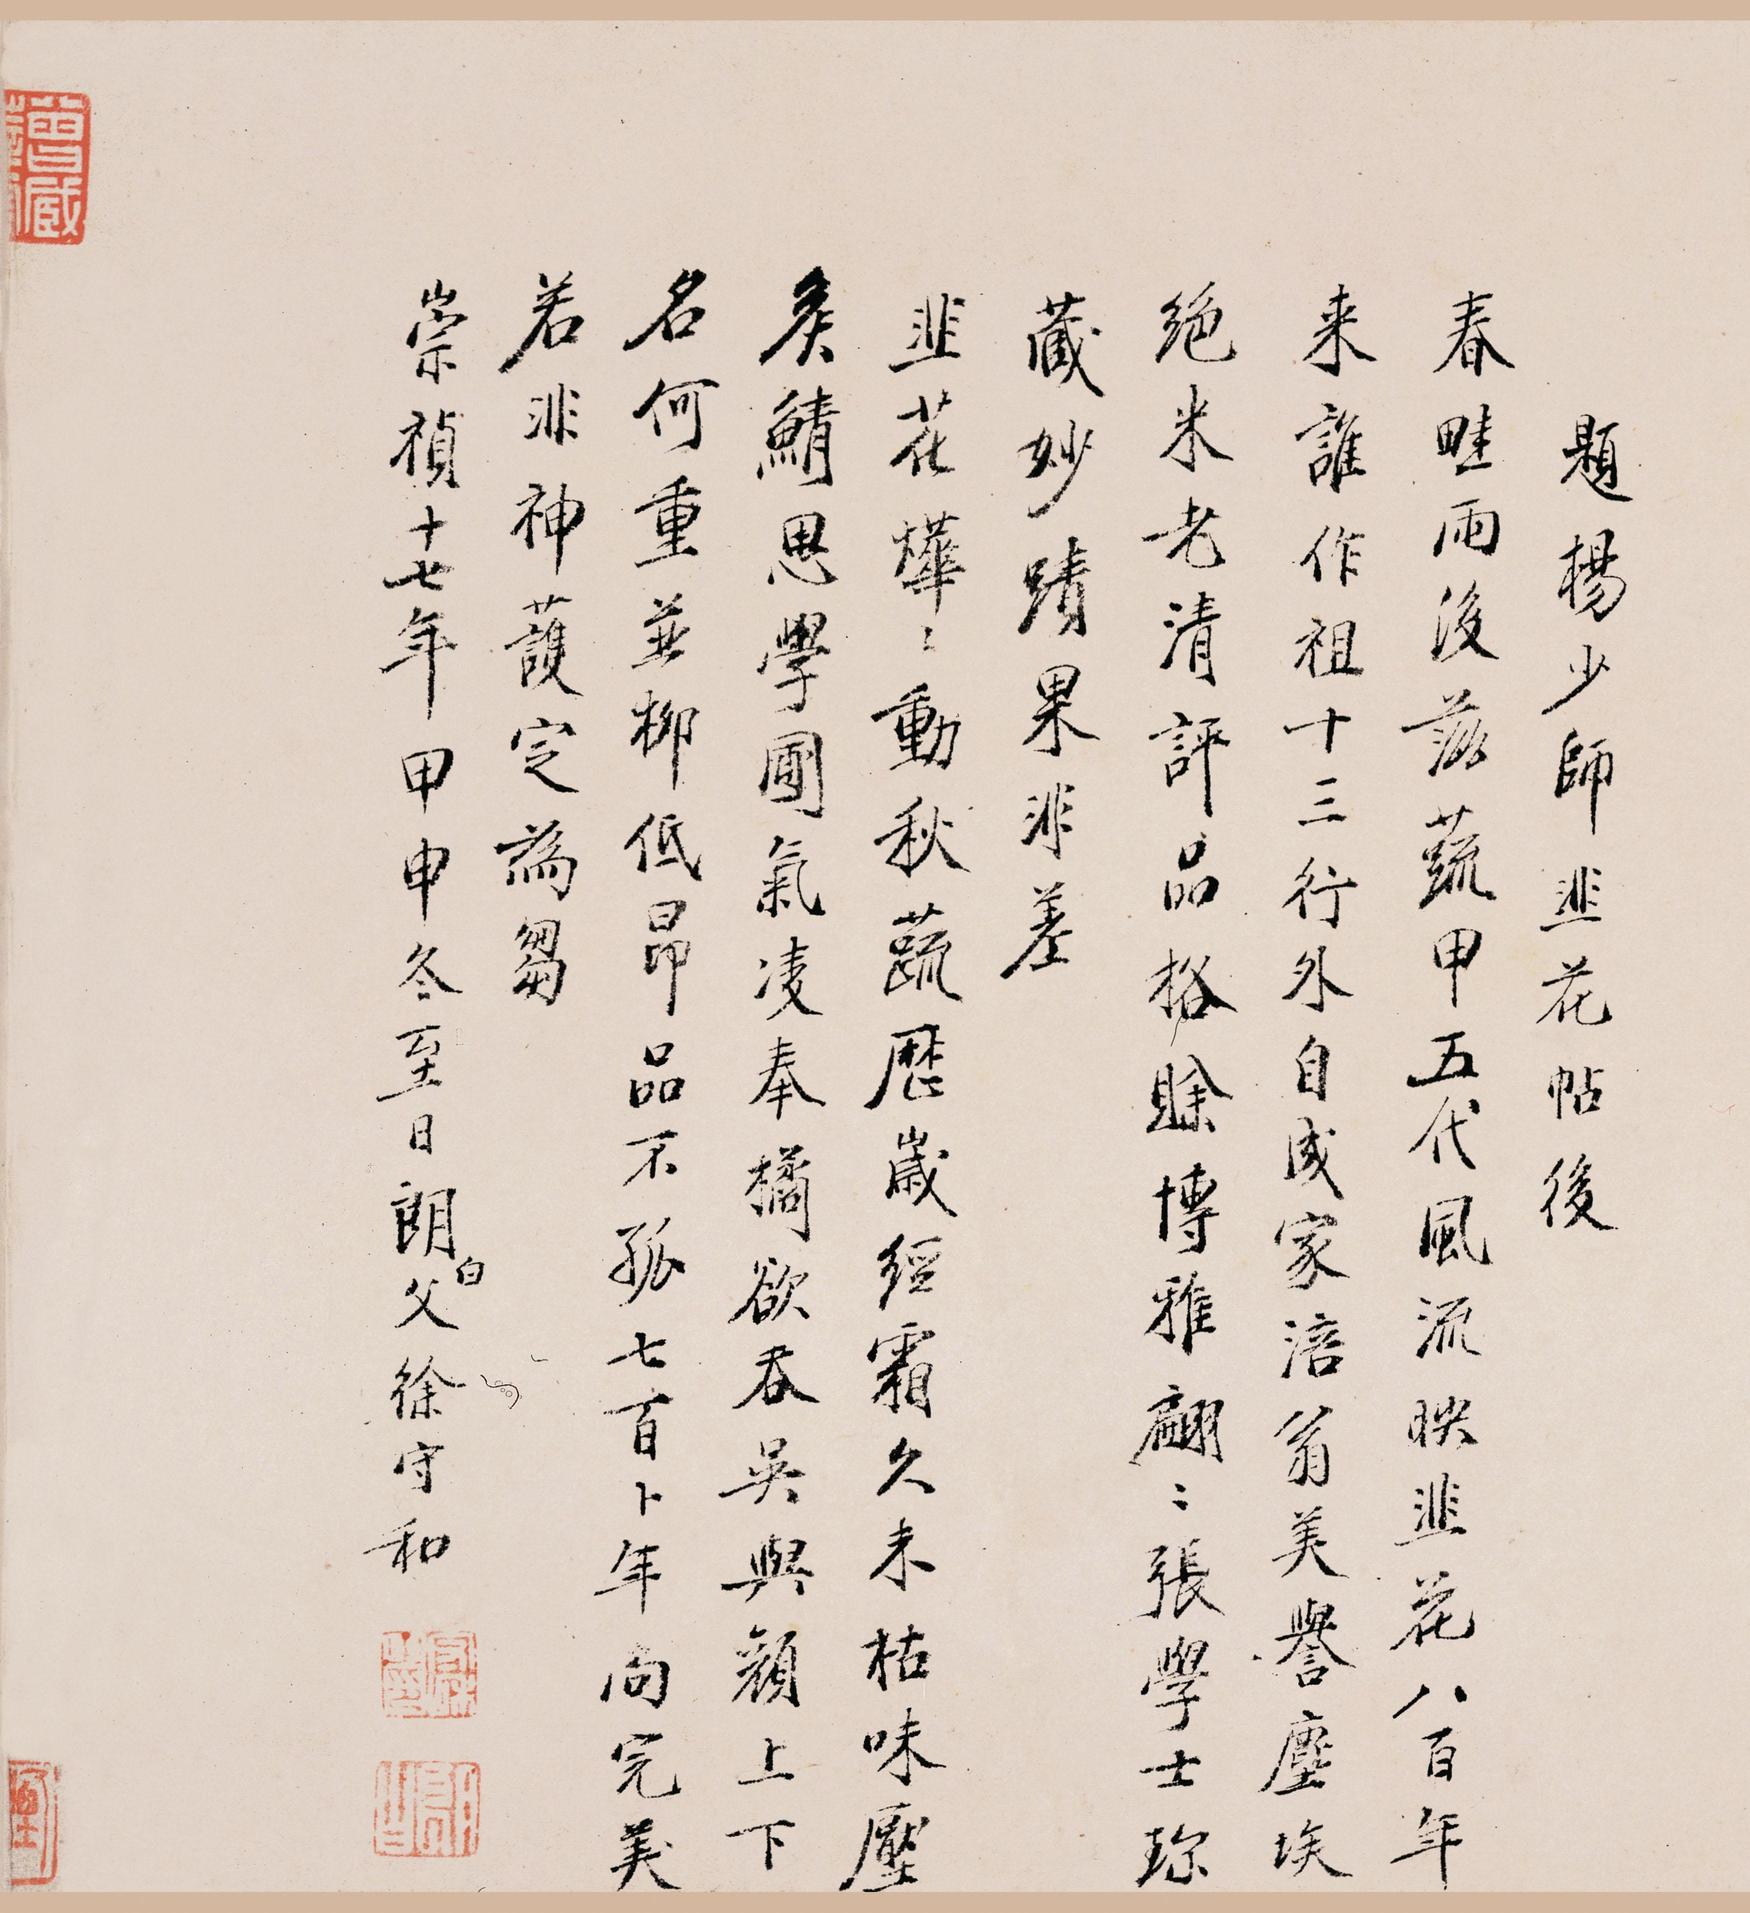 題楊少師韭花帖後
春畦雨後茲蔬甲五代風流映韭花八百年
来誰作祖十三行外自成家涪翁美譽塵埃
絕米老清評品格賒博雅翩〻張學士珎
藏妙蹟果非差
韭花燁〻動秋蔬歷歲經霜久未枯味壓
矦鯖思學圃氣凌奉橘欲吞吳與顏上下
名何重並柳低昂品不孤七百卜年尚完美
若非神護定為芻
崇禎十七年甲申冬至日朗白父徐守和
曾藏